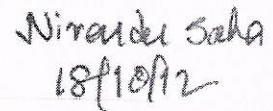 Nirander Saha
18/10/12